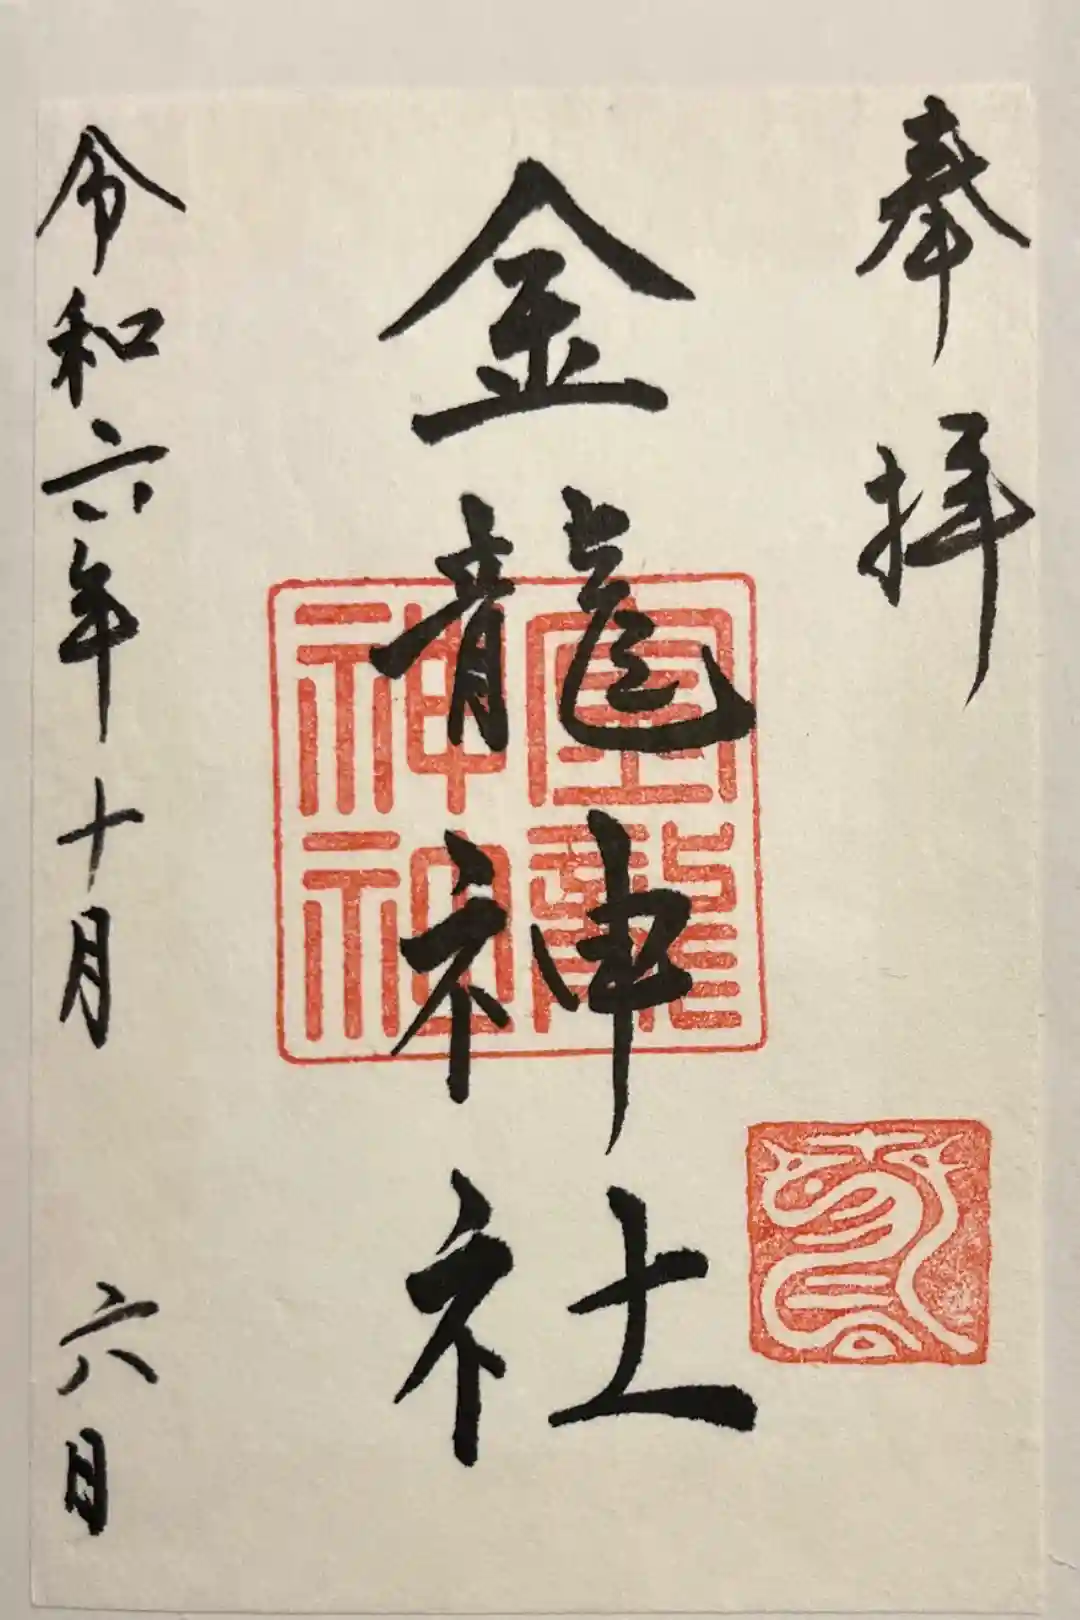 奉拝
金龍神社
龍
神社
令和六年十月六日